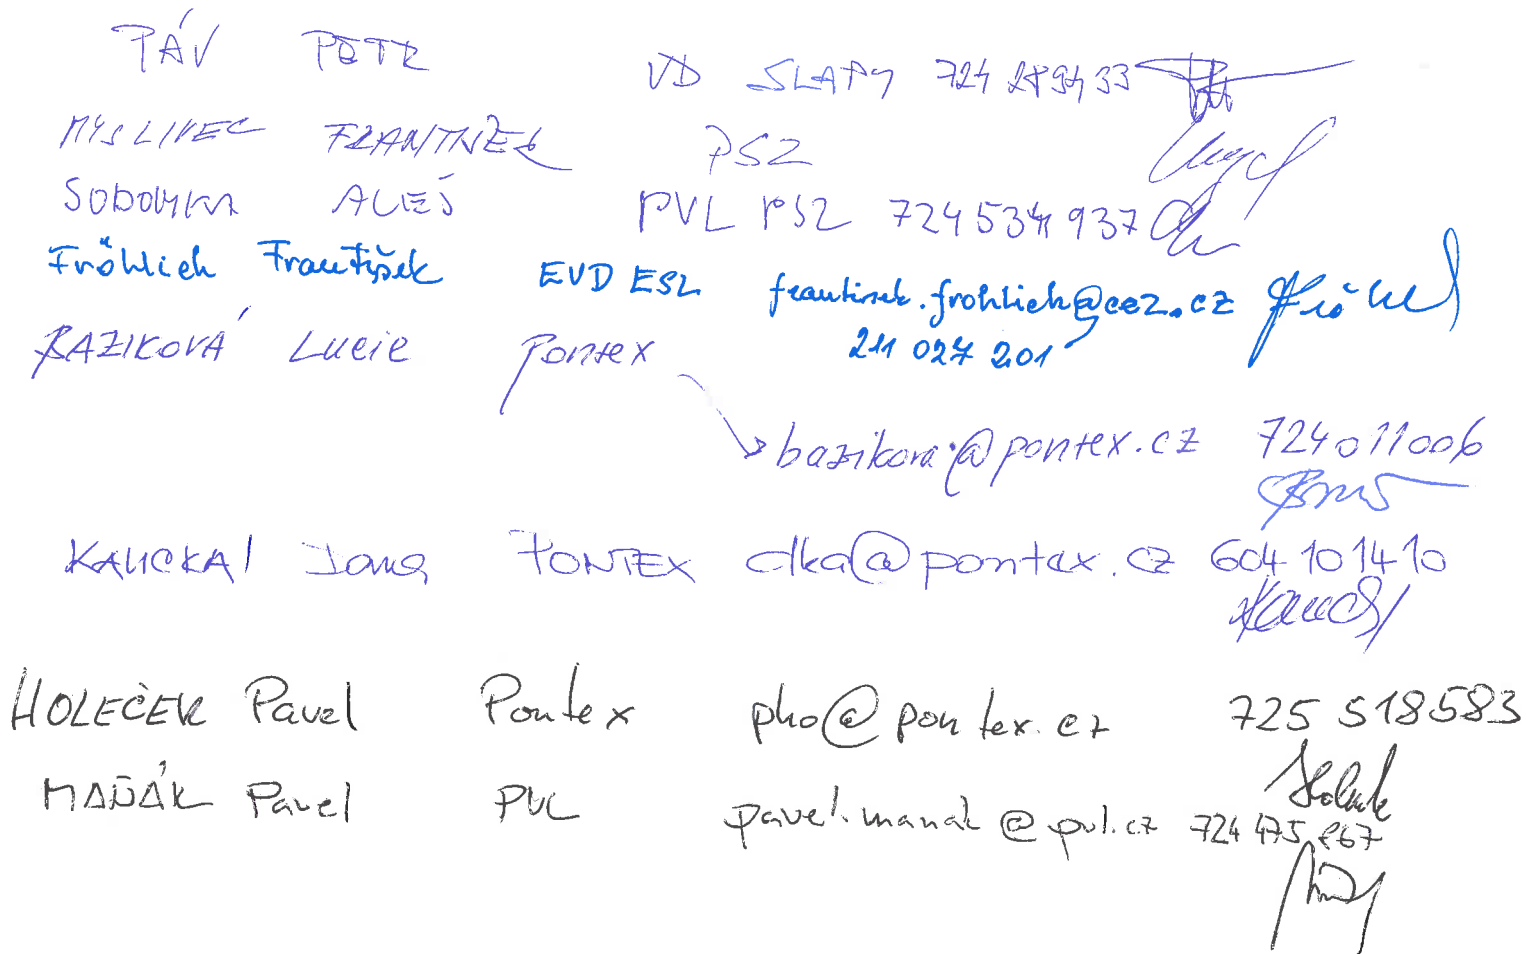 PÁV PETR VD SLAPY 724 289433
MYSLIVEC FRANTIŠEK PSZ
SOBOTKA ALEŠ PVL PSZ 724 534 937
Fröhlich František EVD ESL frantisek.frohlich@cez.cz
211 027 201
BAZIKOVÁ Lucie Pontex
bazikova@pontex.cz 724011006
Jana PONTEX dka@pontex.cz 604 101410
HOLEČEK Pavel Pontex pho@pontex.cz 725 518583
MAŇÁK Pavel PVL pavel.manak@pvl.cz 724 475 867